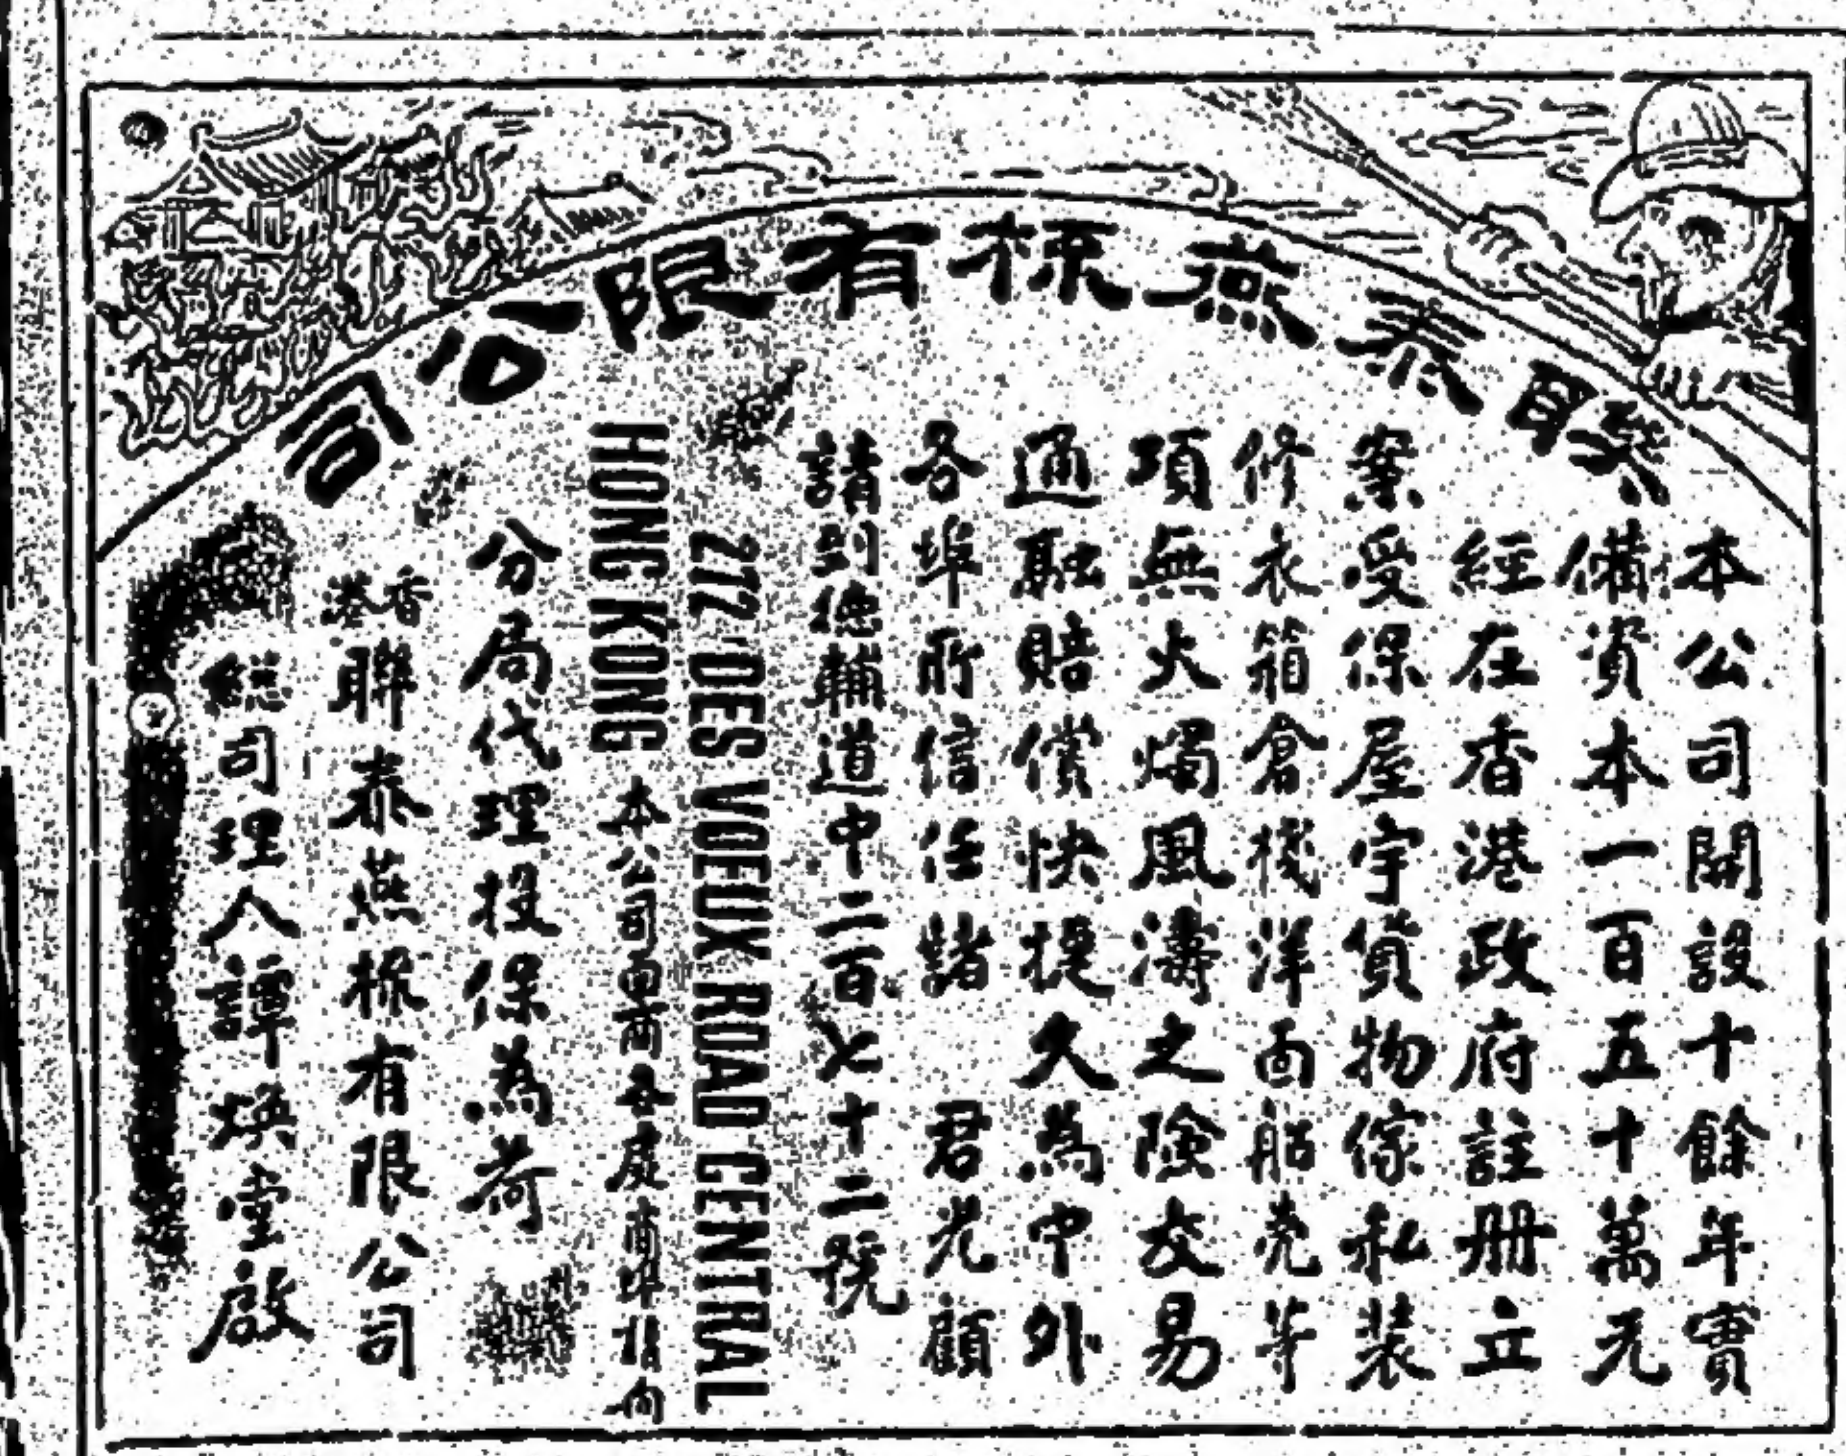 聯泰燕梳有限公司
本公司開設十餘年實
備資本一百五十萬元
經在香港政府註册立
案受保屋宇貨物傢私裝
修衣箱倉棧洋面船壳等
項無火燭風濤之險交易
通融賠償快捷久為中外
各埠所信任諸 君光顧
請到德輔道中二百七十二號
272 DES VOEUX ROAD CENTRAL
HONG KONG 本公司各處商埠
分局代理投保為荷
香港聯泰燕梳有限公司
總司理人譚煥堂啟